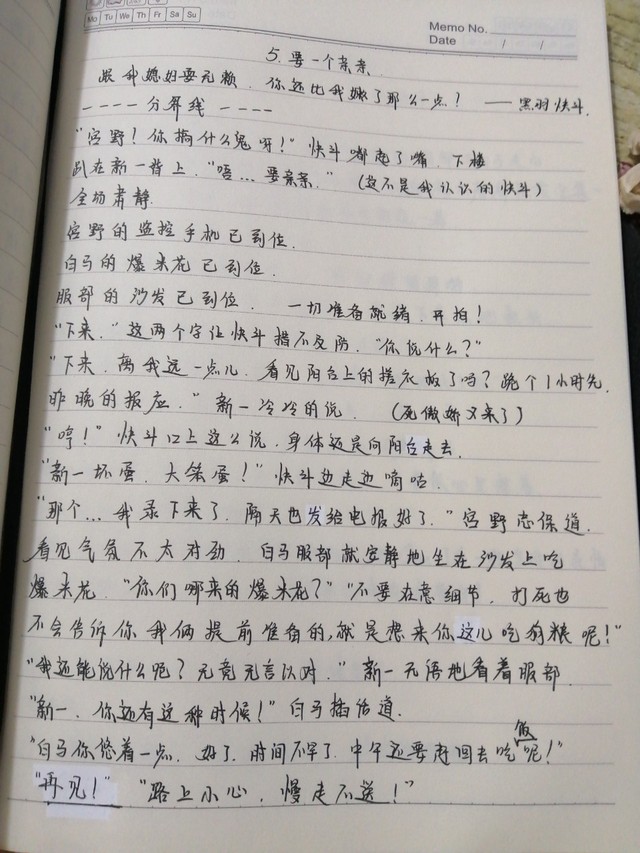 Mo Tu We Th Fr Sa Su
Memo No.
Date / /
5. 要一个亲亲
跟我媳妇耍无赖. 你还比我嫩了那么一点? ——黑羽快斗.
---- 分界线 ----
"宫野! 你搞什么鬼呀!" 快斗嘟起了嘴. 下楼
趴在新一背上. "唔... 要亲亲." (这不是我认识的快斗)
全场肃静.
宫野的监控手机已到位.
白马的爆米花已到位.
服部的沙发已到位. 一切准备就绪. 开拍!
"下来." 这两个字让快斗措不及防. "你说什么?"
"下来. 离我远一点儿. 看见阳台上的搓衣板了吗? 跪个1小时先.
昨晚的报应." 新一冷冷的说. (死傲娇又来了)
"哼!" 快斗口上这么说. 身体还是向阳台走去.
"新一坏蛋. 大笨蛋!" 快斗边走边嘀咕.
"那个... 我录下来了. 隔天也发给电报好了." 宫野志保道.
看见气氛不太对劲. 白马服部就安静地坐在沙发上吃
爆米花. "你们哪来的爆米花?" "不要在意细节. 打死也
不会告诉你我俩提前准备的, 就是想来你这儿吃狗粮呢!"
"我还能说什么呢? 无竞无言以对." 新一无语地看着服部.
"新一. 你还有这种时候!" 白马插话道.
"白马你悠着一点. 好了. 时间不早了. 中午还要赶回去吃饭呢!"
"再见!" "路上小心. 慢走不送!"